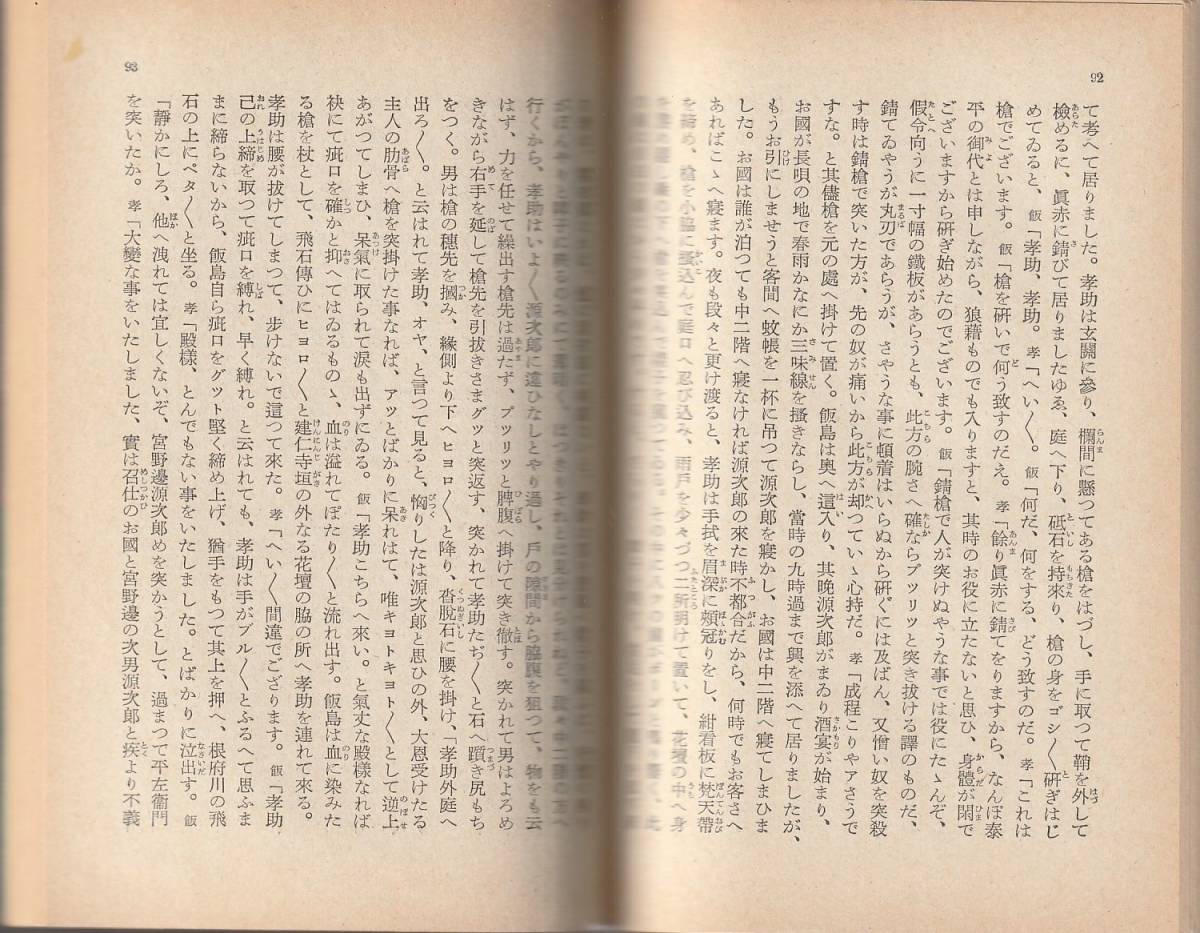 92
て考へて居りました。孝助は玄關に參り、欄間に懸つてある槍をはづし、手に取つて鞘を外して
檢めるに、眞赤に錆びて居りましたゆゑ、庭へ下り、砥石を持來り、槍の身をゴシ〳〵研ぎはじ
めてゐると、飯「孝助、孝助。孝「へい〳〵。飯「何だ、何をする、どう致すのだ。孝「これは
槍でございます。飯「槍を研いで何う致すのだえ。孝「餘り眞赤に錆てをりますから、なんぼ泰
平の御代とは申しながら、狼藉ものでも入りますと、其時のお役に立たないと思ひ、身體が閑で
ございますから研ぎ始めたのでございます。飯「錆槍で人が突けぬやうな事では役にたゝんぞ、
假令向うに一寸幅の鐵板があらうとも、此方の腕さへ確ならプツリッと突き拔ける譯のものだ、
錆てゐやうが丸刃であらうが、さやうな事に頓着はいらぬから研ぐには及ばん、又憎い奴を突殺
す時は錆槍で突いた方が、先の奴が痛いから此方が却つていゝ心持だ。孝「成程こりやアさうで
すな。と其儘槍を元の處へ掛けて置く。飯島は奧へ這入り、其晩源次郎がまゐり酒宴が始まり、
お國が長唄の地で春雨かなにか三味線を搔きならし、當時の九時過まで興を添へて居りましたが、
もうお引にしませうと客間へ蚊帳を一杯に吊つて源次郎を寢かし、お國は中二階へ寢てしまひま
した。お國は誰が泊つても中二階へ寢なければ源次郎の來た時不都合だから、何時でもお客さへ
あればこゝへ寢ます。夜も段々と更け渡ると、孝助は手拭を眉深に頰冠りをし、紺看板に梵天帶
を締め、槍を小脇に搔込んで庭口へ忍び込み、雨戸を少々づつ二所明けて置いて、花壇の中へ身
93
行くから、孝助はいよ〳〵源次郎に違ひなしとやり過し、戸の隙間から脇腹を狙つて、物をも云
はず、力を任せて繰出す槍先は過たず、プツリッと脾腹へ掛けて突き徹す。突かれて男はよろめ
きながら右手を延して槍先を引拔きさまグッと突返す、突かれて孝助たぢ〳〵と石へ躓き尻もち
をつく。男は槍の穗先を摑み、緣側より下へヒヨロ〳〵と降り、沓脱石に腰を掛け、「孝助外庭へ
出ろ〳〵。と云はれて孝助、オヤ、と言つて見ると、恟りしたは源次郎と思ひの外、大恩受けたる
主人の肋骨へ槍を突掛けた事なれば、アツとばかりに呆れはて、唯キョトキョト〳〵として逆上
あがつてしまひ、呆氣に取られて涙も出ずにゐる。飯「孝助こちらへ來い。と氣丈な殿樣なれば
袂にて疵口を確かと抑へてはゐるものゝ、血は溢れてぼたり〳〵と流れ出す。飯島は血に染みた
る槍を杖として、飛石傳ひにヒヨロ〳〵と建仁寺垣の外なる花壇の脇の所へ孝助を連れて來る。
孝助は腰が拔けてしまつて、步けないで這つて來た。孝「へい〳〵間違でござります。飯「孝助
己の上締を取つて疵口を縛れ、早く縛れ。と云はれても、孝助は手がブル〳〵とふるへて思ふま
まに締らないから、飯島自ら疵口をグツト堅く締め上げ、猶手をもつて其上を押へ、根府川の飛
石の上にペタ〳〵と坐る。孝「殿樣、とんでもない事をいたしました。とばかりに泣出す。飯
「靜かにしろ、他へ洩れては宜しくないぞ、宮野邊源次郎めを突かうとして、過まつて平左衞門
を突いたか。孝「大變な事をいたしました、實は召仕のお國と宮野邊の次男源次郎と疾より不義